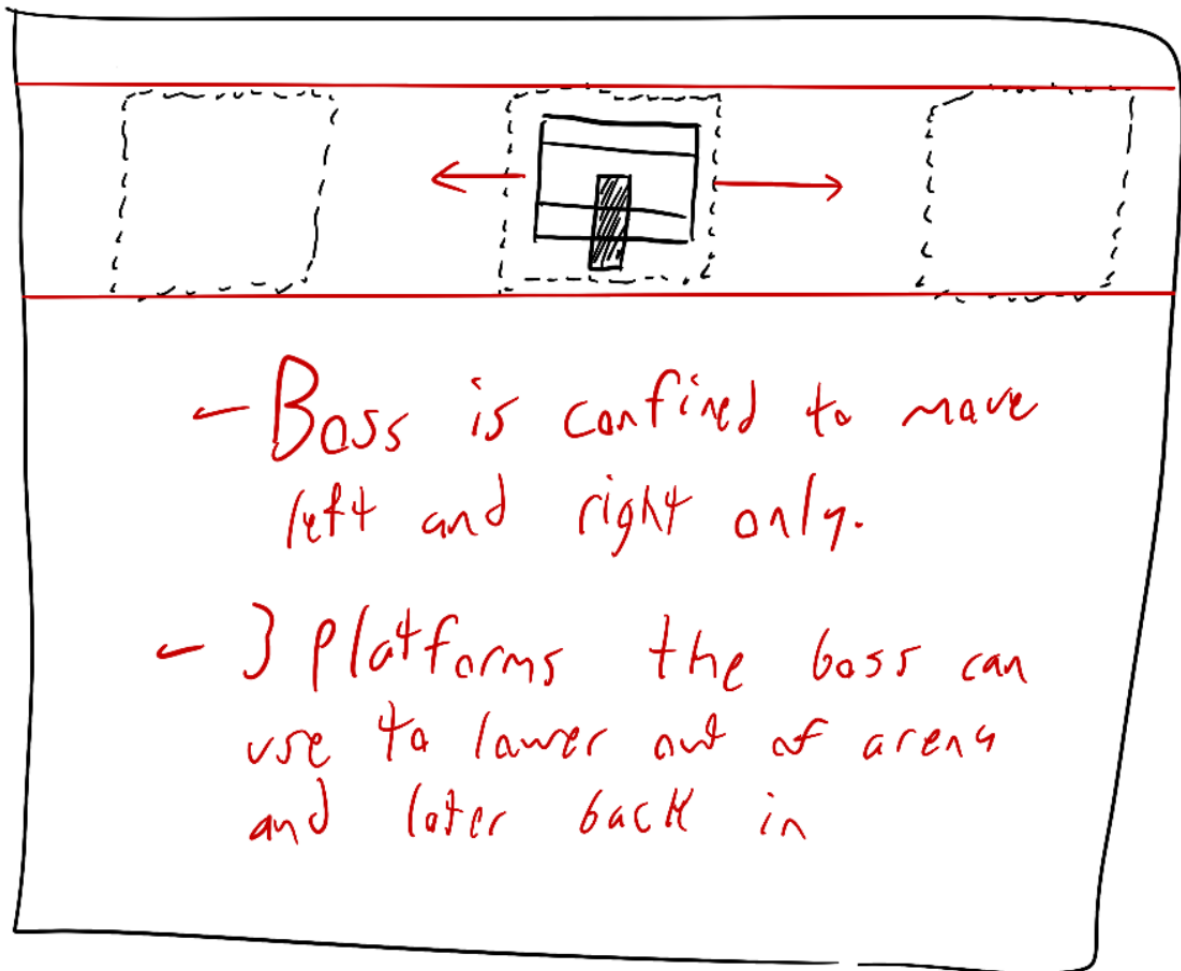 - Boss is confined to move
left and right only.
- 3 platforms the boss can
use to lower out of arena
and later back in